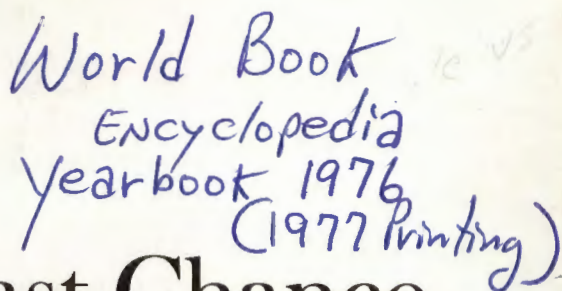 World Book
Encyclopedia
Yearbook 1976
(1977 Printing)
ast Chance